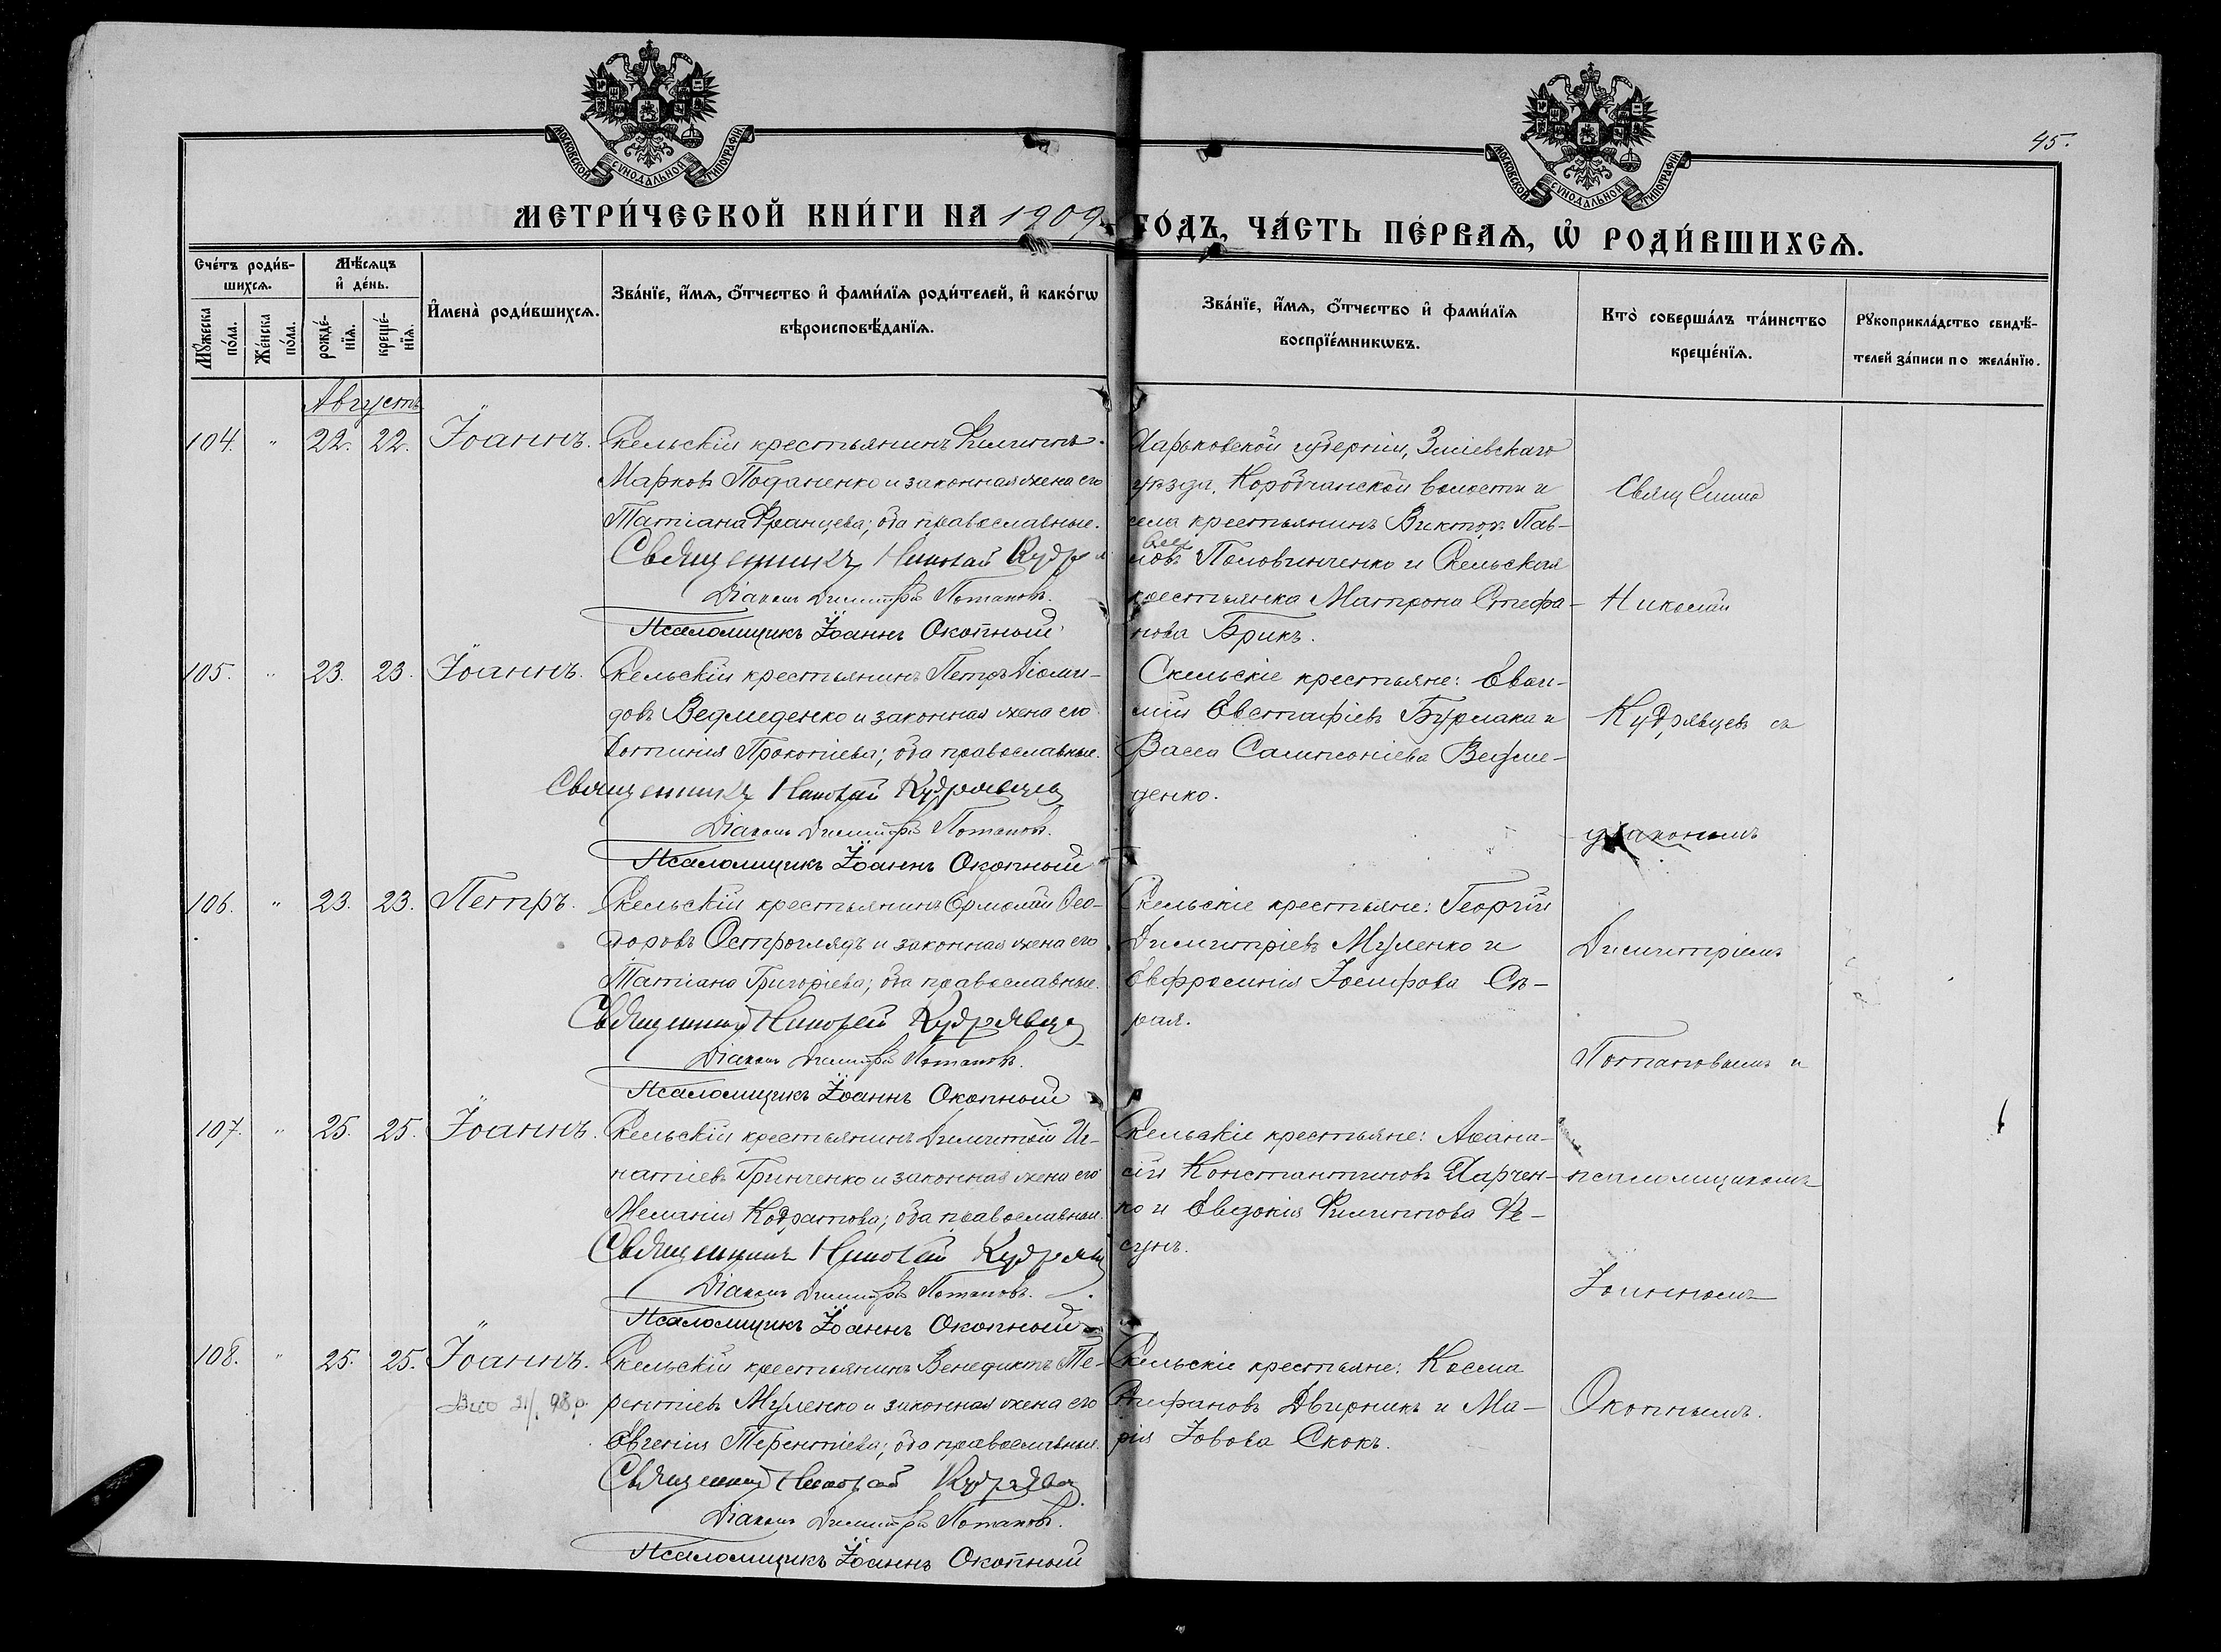 45.
МОСКОВСКОЙ СѴНОДАЛЬНОЙ ТИПОГРАФІИ
МОСКОВСКОЙ СѴНОДАЛЬНОЙ ТИПОГРАФІИ
МЕТРИ́ЧЕСКОЙ КНИ́ГИ НА 1909 ГО́ДЪ, ЧА́СТЬ ПЕ́РВАѦ, Ѡ҆ РОДИ́ВШИХСѦ.
Сче́тъ роди́в-
шихсѧ.
Мꙋ́жеска по́ла.
Же́нска по́ла.
Мѣ́сѧцъ
и҆ де́нь.
рожде́-
нїѧ.
креще́-
нїѧ.
И҆мена̀ роди́вшихсѧ.
Зва́нїе, и҆́мѧ, ѻ҆́тчество и҆ фами́лїѧ роди́телей, и҆ како́гѡ
вѣроисповѣ́данїѧ.
Зва́нїе, и҆́мѧ, ѻ҆́тчество и҆ фами́лїѧ
воспрїе́мникѡвъ.
Кто̀ соверша́лъ та́инство
креще́нїѧ.
Рꙋкоприкла́дство свидѣ́-
телей за́писи по жела́нїю.
Августъ
104. " 22. 22. Іоаннъ.
Скельскій крестьянинъ Филиппъ
Марковъ Поданенко и законная жена его
Татіана Францева; оба православные.
Священникъ Николай Кудр
Діаконъ Димитрій Потаповъ.
Псаломщикъ Іоаннъ Окопный
Харьковской губерніи, Зміевскаго
уѣзда, Коробчанской волости и
села крестьянинъ Викторъ Пав-
ловъ Половинченко и Скельская
крестьянка Матрона Стефа-
нова Брикъ.
105. " 23. 23. Іоаннъ.
Скельскій крестьянинъ Петръ Діоми-
довъ Ведмеденко и законная жена его
Фотинія Прокопіева; оба православные.
Священникъ Николай Кудрявцев
Діаконъ Димитрій Потаповъ.
Псаломщикъ Іоаннъ Окопный
Скельскіе крестьяне:
Евстафіевъ Бурлака и
Васса Сампсоніева Ведме-
денко.
106. " 23. 23. Петръ.
Скельскій крестьянинъ Ермолай Ѳео-
доровъ Остроглядъ и законная жена его
Татіана Григоріева; оба православные.
Священник Николай Кудрявцев
Діаконъ Димитрій Потаповъ.
Псаломщикъ Іоаннъ Окопный
Скельскіе крестьяне: Георгій
Димитріевъ Муленко и
Евфросинія Іосифова Сѣ-
рая.
107. " 25. 25. Іоаннъ.
Скельскій крестьянинъ Димитрій Иг-
натіевъ Гринченко и законная жена его
Меланія Кодратова; оба православные.
Священникъ Николай Кудрявц
Діаконъ Димитрій Потаповъ.
Псаломщикъ Іоаннъ Окопный
Скельскіе крестьяне: Аѳана-
сій Константиновъ Харчен-
ко и Евдокія Филиппова Фе-
сунъ.
108. " 25. 25. Іоаннъ.
98 р.
Скельскій крестьянинъ Венедиктъ Те-
рентіевъ Муленко и законная жена его
Евгенія Терентіева; оба православные.
Священник Николай Кудрявц
Діаконъ Димитрій Потаповъ.
Псаломщикъ Іоаннъ Окопный
Скельскіе крестьяне: Косма
Стефановъ Двирникъ и Ма-
рія Іовова Скокъ.
Священно
Николай
Кудрявцевъ съ
діакономъ
Димитріемъ
Потаповымъ и
псаломщикомъ
Іоанномъ
Окопнымъ.